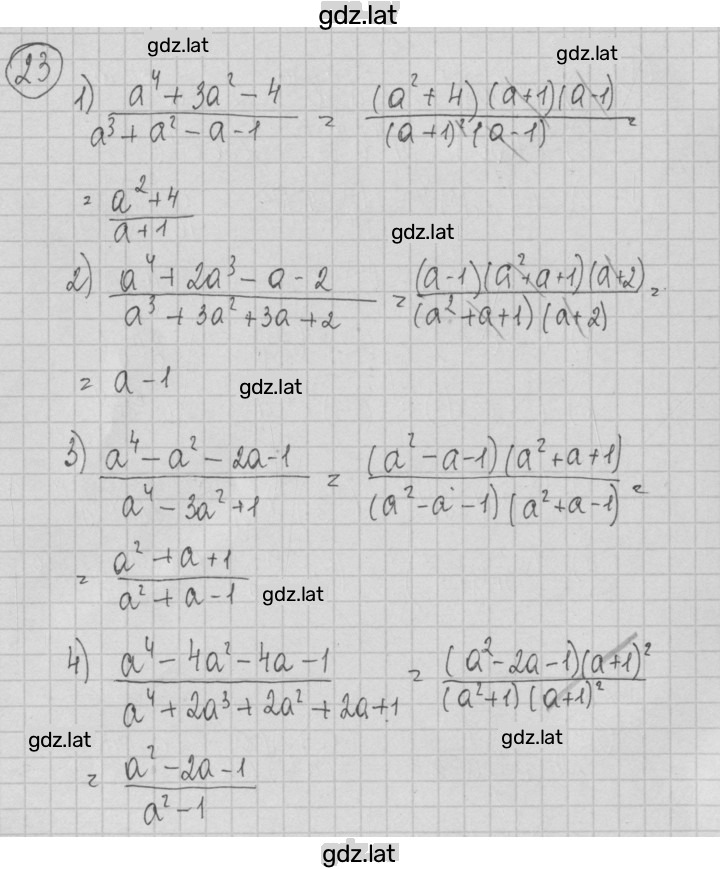 gdz.lat
23
gdz.lat
gdz.lat
1) (a⁴ + 3a² - 4)/(a³ + a² - a - 1) = ((a² + 4)(a+1)(a-1))/((a+1)²(a-1)) =
= (a² + 4)/(a + 1)
gdz.lat
2) (a⁴ + 2a³ - a - 2)/(a³ + 3a² + 3a + 2) = ((a-1)(a² + a + 1)(a+2))/((a² + a + 1)(a+2)) =
= a - 1
gdz.lat
3) (a⁴ - a² - 2a - 1)/(a⁴ - 3a² + 1) = ((a² - a - 1)(a² + a + 1))/((a² - a - 1)(a² + a - 1)) =
= (a² + a + 1)/(a² + a - 1)
gdz.lat
4) (a⁴ - 4a² - 4a - 1)/(a⁴ + 2a³ + 2a² + 2a + 1) = ((a² - 2a - 1)(a+1)²)/((a² + 1)(a+1)²)
gdz.lat
gdz.lat
= (a² - 2a - 1)/(a² - 1)
gdz.lat